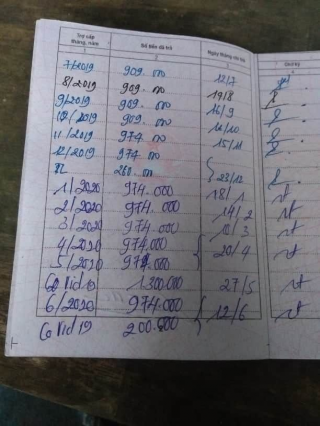 Trợ cấp tháng, năm Số tiền đã trả Ngày tháng chi trả Chữ ký
1 2 3 4
7/2019 909.000 12/7
8/2019 909.000 19/8
9/2019 909.000 16/9
10/2019 909.000 16/10
11/2019 974.000 15/11
12/2019 974.000
260.000 23/12
1/2020 974.000 18/1
2/2020 974.000 14/2
3/2020 974.000 10/3
4/2020 974.000 20/4
5/2020 974.000
Covid 19 1.300.000 27/5
6/2020 974.000 12/6
Covid 19 200.000